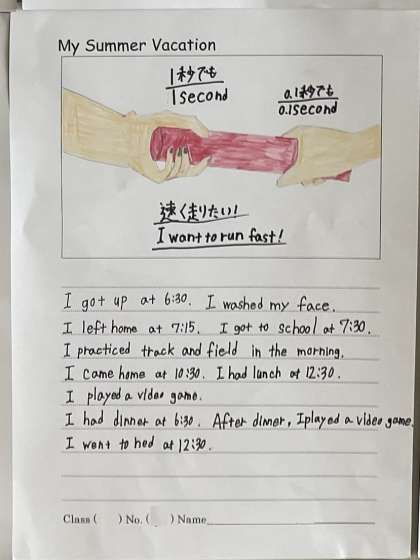 My Summer Vacation
1秒でも
1second
0.1秒でも
0.1second
速く走りたい!
I want to run fast!
I got up at 6:30. I washed my face.
I left home at 7:15. I got to school at 7:30.
I practiced track and field in the morning.
I came home at 10:30. I had lunch at 12:30.
I played a video game.
I had dinner at 6:30. After dinner, I played a video game.
I went to bed at 12:30.
Class ( ) No. ( ) Name